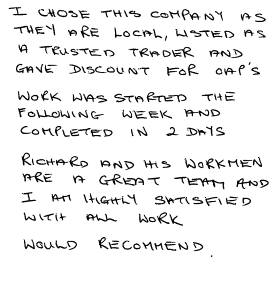 I CHOSE THIS COMPANY AS
THEY ARE LOCAL, LISTED AS
A TRUSTED TRADER AND
GAVE DISCOUNT FOR OAP'S
WORK WAS STARTED THE
FOLLOWING WEEK AND
COMPLETED IN 2 DAYS
RICHARD AND HIS WORKMEN
ARE A GREAT TEAM AND
I AM HIGHLY SATISFIED
WITH ALL WORK
WOULD RECOMMEND.